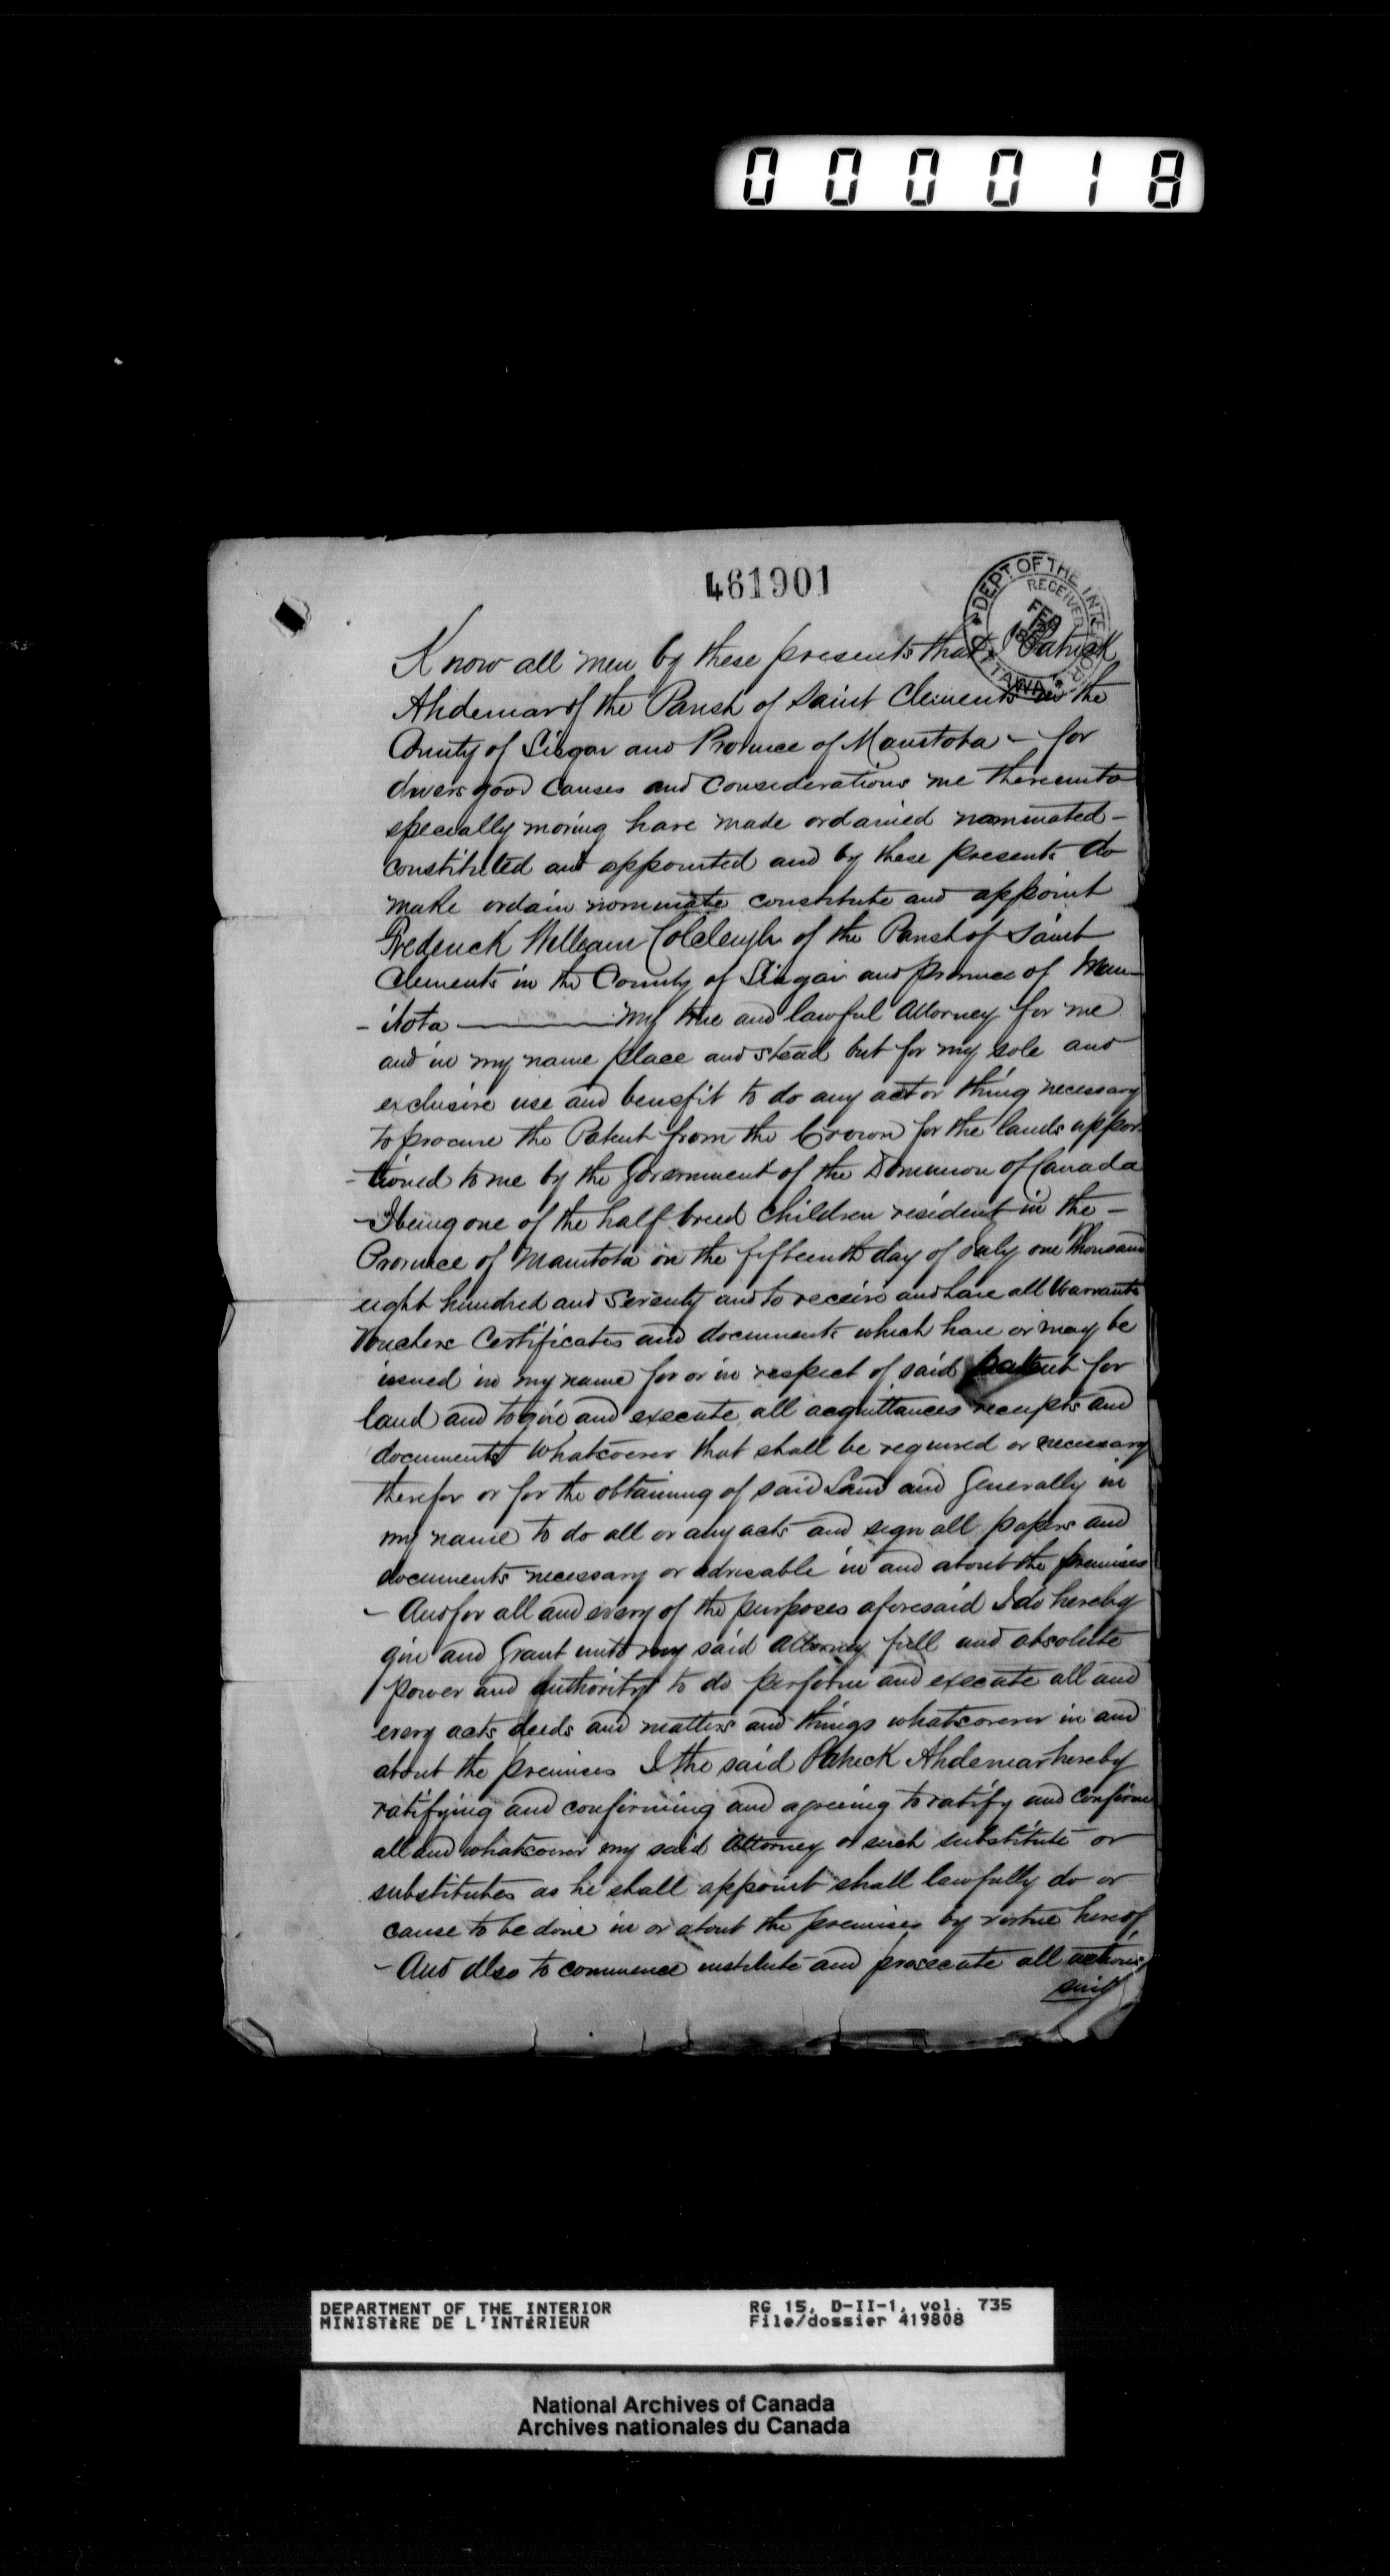 000018
461901
DEPT. OF THE INTERIOR
RECEIVED
FEB
OTTAWA
Know all men by these presents that I Patrick
Ahdemar of the Parish of Saint Clements in the
County of Lisgar and Province of Manitoba - for
divers good causes and considerations me thereunto
specially moving have made ordained nominated -
constituted and appointed and by these presents do
make ordain nominate constitute and appoint
Frederick William Colcleugh of the Parish of Saint
Clements in the County of Lisgar and province of Man-
- itota ——— my true and lawful Attorney for me
and in my name place and stead but for my sole and
exclusive use and benefit to do any act or thing necessary
to procure the Patent from the Crown for the lands appor-
- tioned to me by the Government of the Dominion of Canada
- I being one of the half breed children resident in the -
Province of Manitoba on the fifteenth day of July one thousand
eight hundred and Seventy and to receive and have all Warrants
Vouchers Certificates and documents which have or may be
issued in my name for or in respect of said patent for
land and to give and execute all acquittances receipts and
documents whatsoever that shall be required or necessary
therefor or for the obtaining of said Land and Generally in
my name to do all or any acts and sign all papers and
documents necessary or advisable in and about the premises
- And for all and every of the purposes aforesaid I do hereby
give and Grant unto my said Attorney full and absolute
power and authority to do perform and execute all and
every acts deeds and matters and things whatsoever in and
about the premises I the said Patrick Ahdemar hereby
ratifying and confirming and agreeing to ratify and confirm
all and whatsoever my said Attorney or such substitute or
substitutes as he shall appoint shall lawfully do or
cause to be done in or about the premises by virtue hereof
- And also to commence institute and prosecute all actions
suit
DEPARTMENT OF THE INTERIOR
MINISTÈRE DE L'INTÉRIEUR
RG 15, D-II-1, vol. 735
File/dossier 419808
National Archives of Canada
Archives nationales du Canada